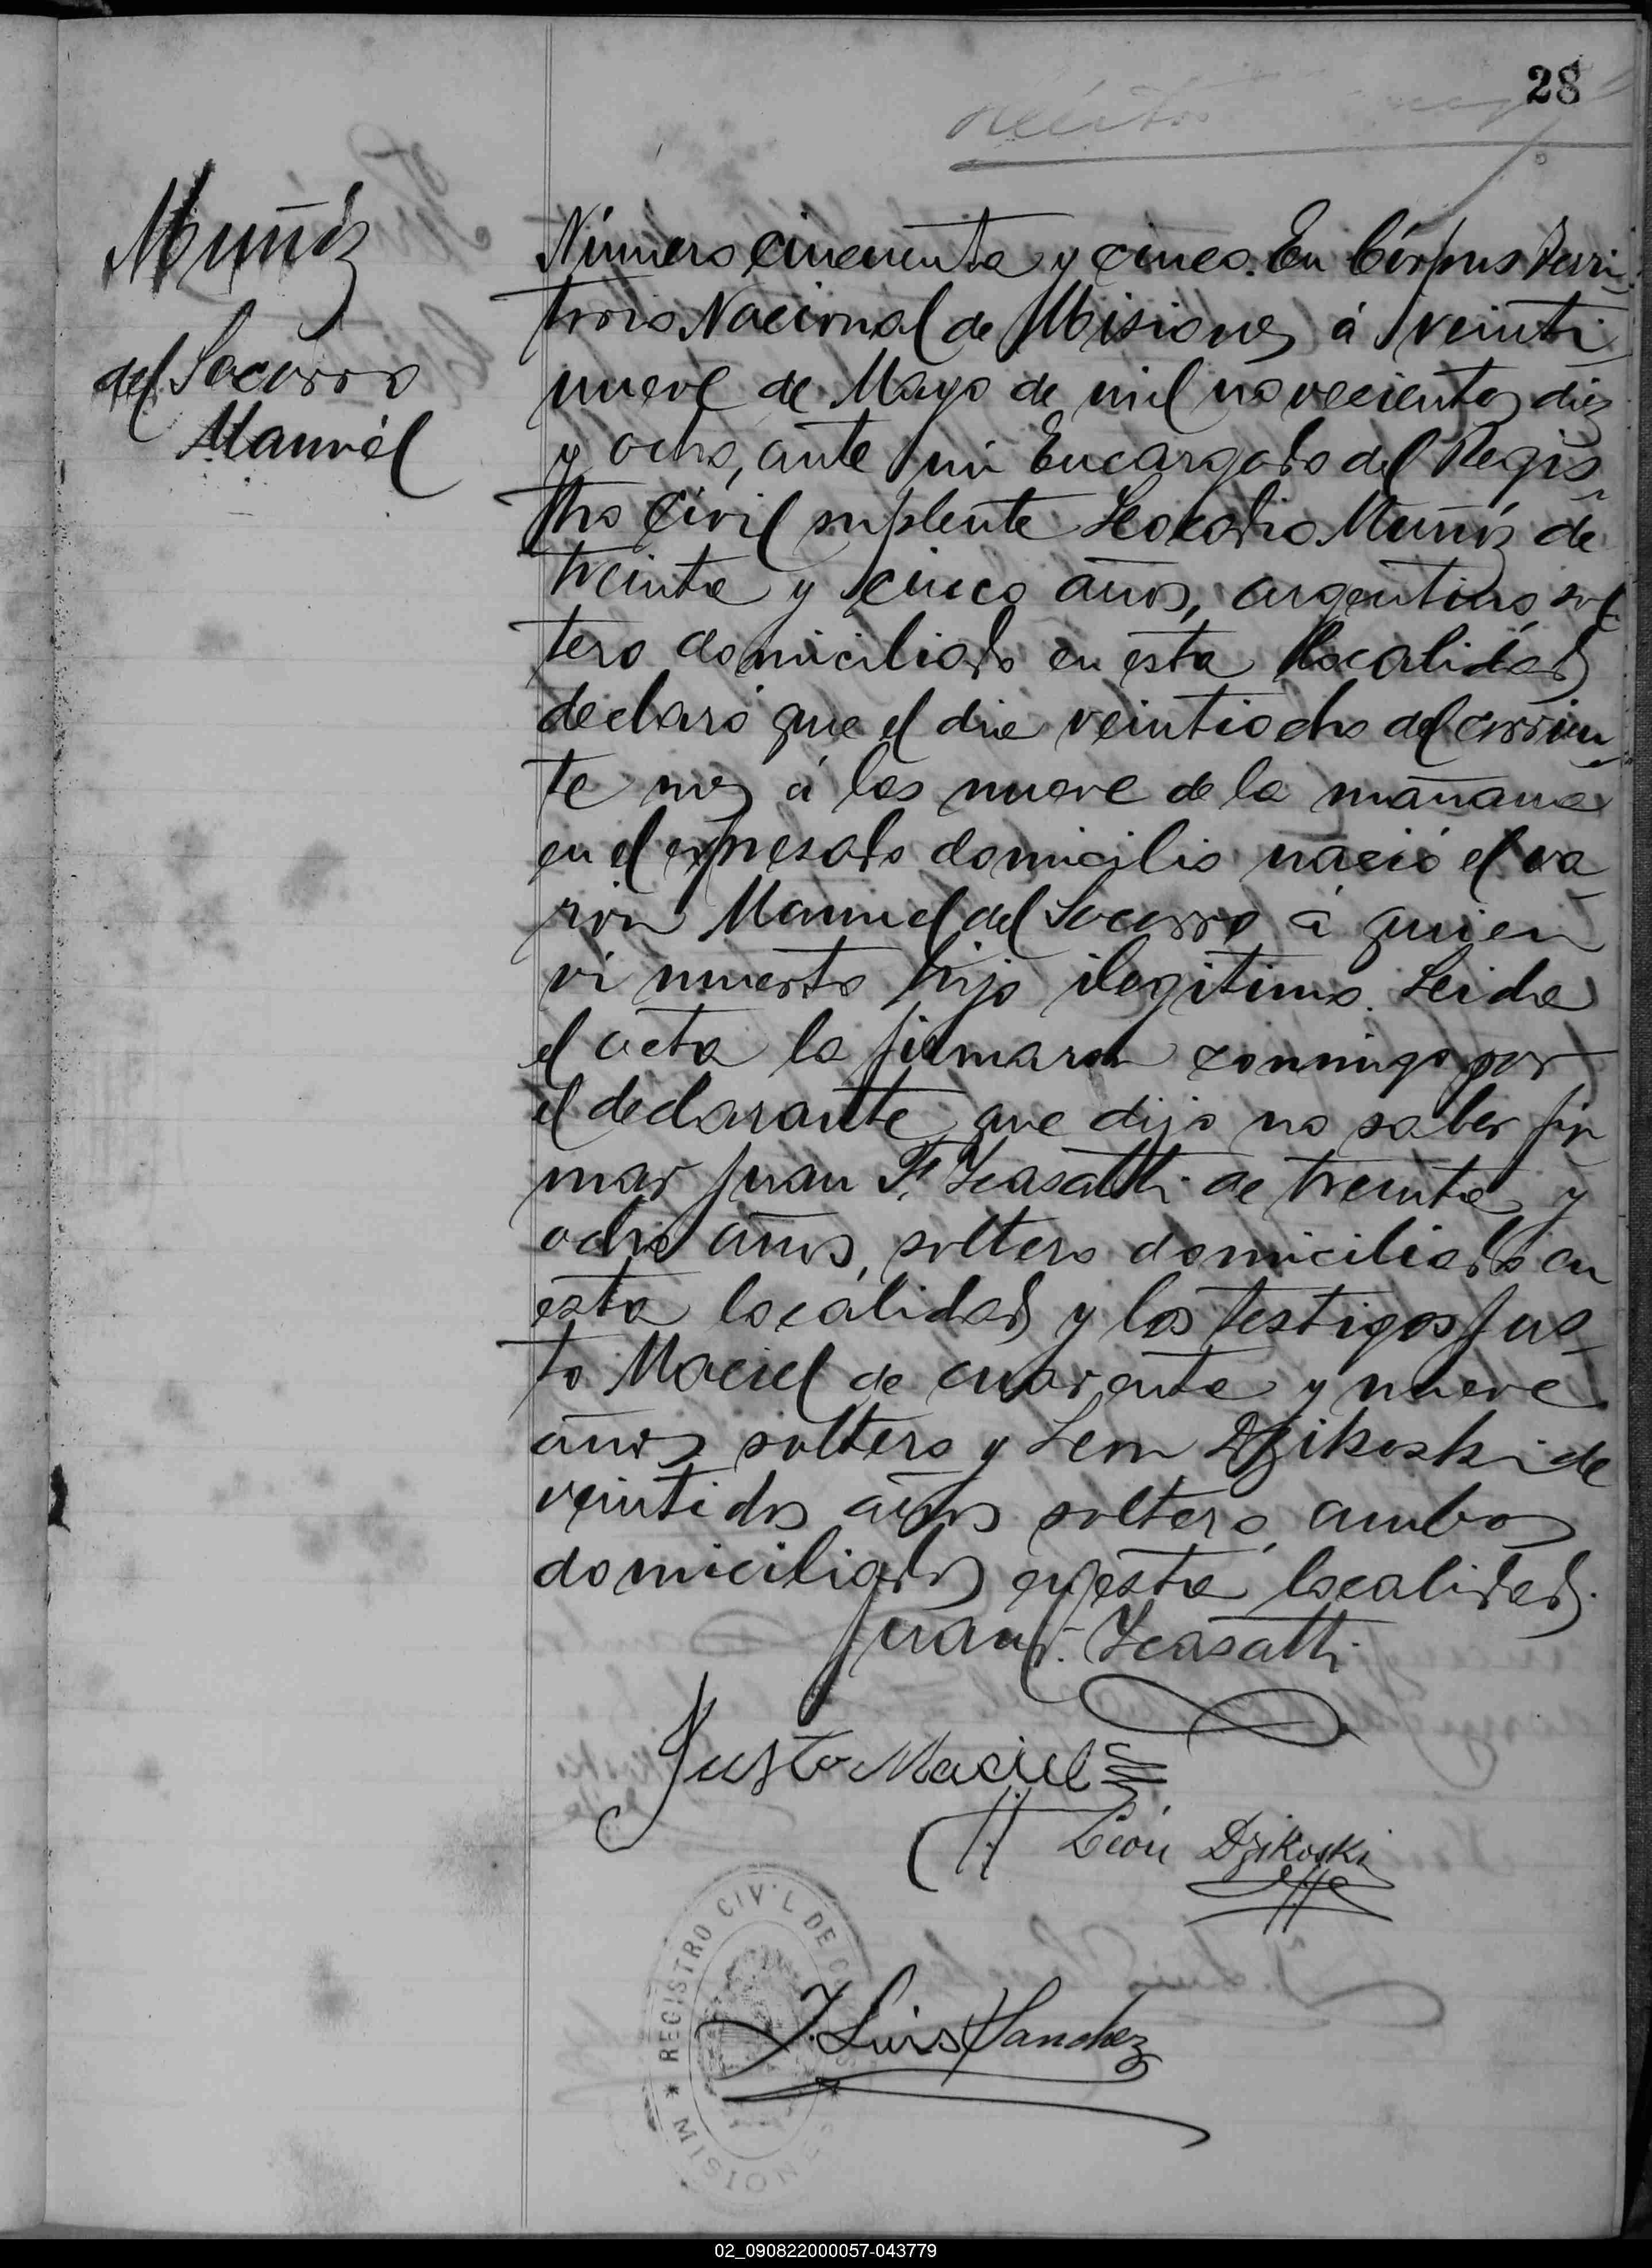 28
Muñóz
del Socorro
Manuel
Número cincuenta y cinco. En Córpus Terri-
torio Nacional de Misiones á veinti
nueve de Mayo de mil novecientos diez
y ocho, ante mi Encargado del Regis-
tro Civil suplente Leocadio Muñóz de
treinta y cinco años, argentino, sol-
tero domiciliado en esta localidad
declaró que el dia veintiocho del corrien-
te mes á las nueve de la mañana
en el expresado domicilio nació el va-
rón Manuel del Socorro á quien
vi muerto hijo ilegitimo. Leida
el acta la firmaron conmigo por
el declarante que dijo no saber fir
mar Juan F. de treinta y
ocho años, soltero domiciliado en
esta localidad y los testigos Jus-
to Maciel de cuarenta y nueve
años soltero y Leon Dzikoski de
veintidos años soltero, ambos
domiciliados en esta localidad.
Juan F.
Justo Maciel
León Dzikoski
J. Luis Sanchez
REGISTRO CIVIL DE
MISIONES
02_090822000057-043779